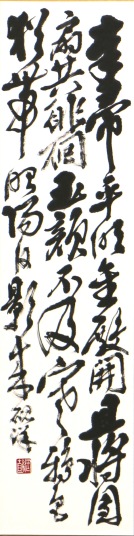 奉帚平明金殿開且將團
扇共徘徊玉顏不及寒鴉色
猶帶昭陽日影來